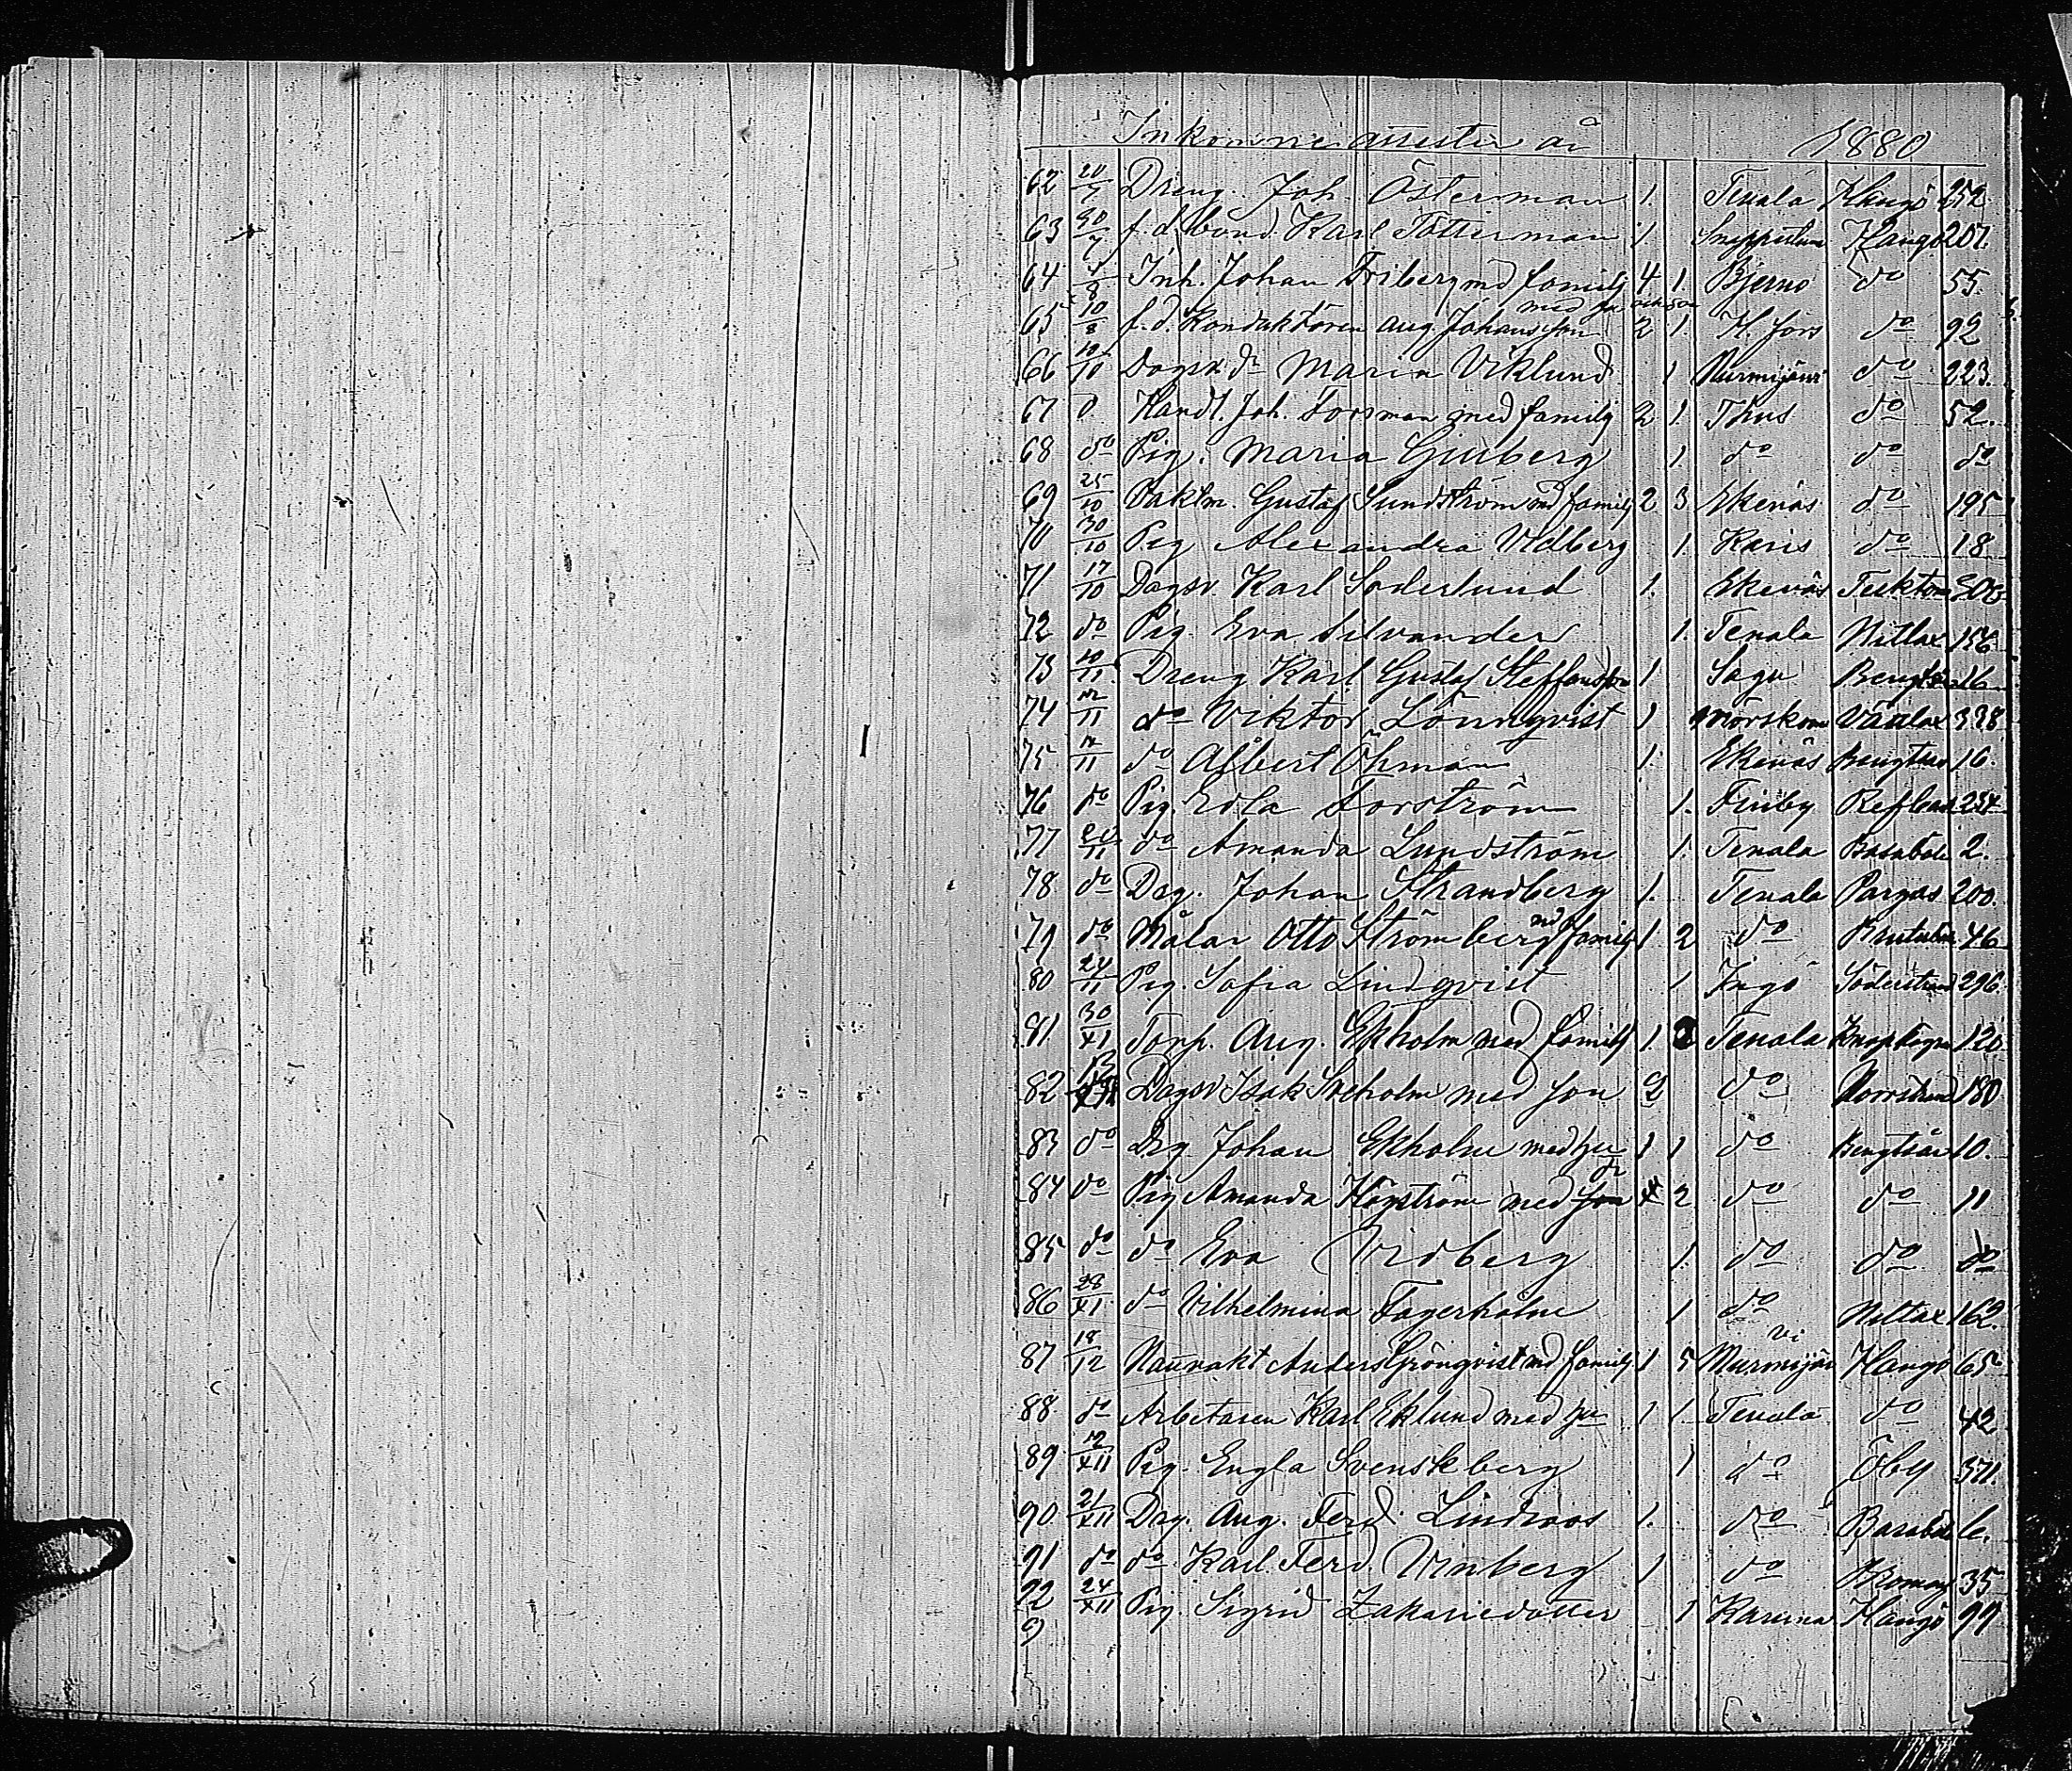 Inkomne attester år 1880
62 20/7 Dreng Joh. Österman 1. Tenala Hangö 252
63 30/7 f.d. bond. Karl Tötterman 1 Hangö 207.
64 4/8 Inh. Johan Friberg md familj 4 1. Bjerno do 55.
65 10/8 f.d. Konduktören Aug. Johansson med 2 1. H.fors do 92
66 10/10 Dagsk. dr Maria Viklund 1 Nurmijärvi do 223.
67 Handl. Joh. Forsman med familj 2 1. Thus do 52.
68 do Pig. Maria 1. do do do
69 25/10 Vaktm. Gustaf Sundström md familj 2 3 Ekenäs do 195
70 30/10 Pig Alexandra Vidberg 1. Karis do 18
71 17/10 Dagsv. Karl Söderlund 1. Ekenäs
72 do Pig. Eva Silvander 1. Tenala Nitlax 156
73 10/11 Dreng Karl Gustaf Steffansson 1 Sagu 16
74 12/11 do Viktor Lönnqvist 1 Mörskom Vättlax 338
75 12/11 do Albert Öhman 1. Ekenäs 16.
76 do Pig. Edla Forström 1. Finby 234
77 20/11 do Amanda Lundström 1. Tenala Basaböle 2.
78 do Drg. Johan Strandberg 1. Tenala Pargas 200.
79 do Målar Otto Strömberg md familj 1 2 do 46
80 24/11 Pig. Sofia Lindqvist 1 Ingå Söderstrand 296.
81 30/XI Torp. Aug. Ekholm med familj 1. Tenala 120
82 Dagsv Isak med son 2 do Norrstrand 180
83 do Drg Johan Ekholm med hu 1 1 do Bengtsår 10.
84 do Pig Amanda Högström med son dr 2 do do 11
85 do do Eva Vidberg 1. do do do
86 28/XI do Vilhelmina Fagerholm 1 do Nitlax 162.
87 18/12 Anders Grönqvist md familj 1 5 Nurmijärvi Hangö 65
88 do Arbetaren Karl Eklund med hu 1 1 Tenala do 42
89 12/XII Pig. Engla Svenskberg 1 do Öby 371
90 21/XII Drg. Aug. Ferd. Lindroos 1. do Basaböle 6.
91 do do Karl Ferd. 1 do 35
92 24/XII Pig. Sigrid Zakariedotter 1 Karuna Hangö 99
9